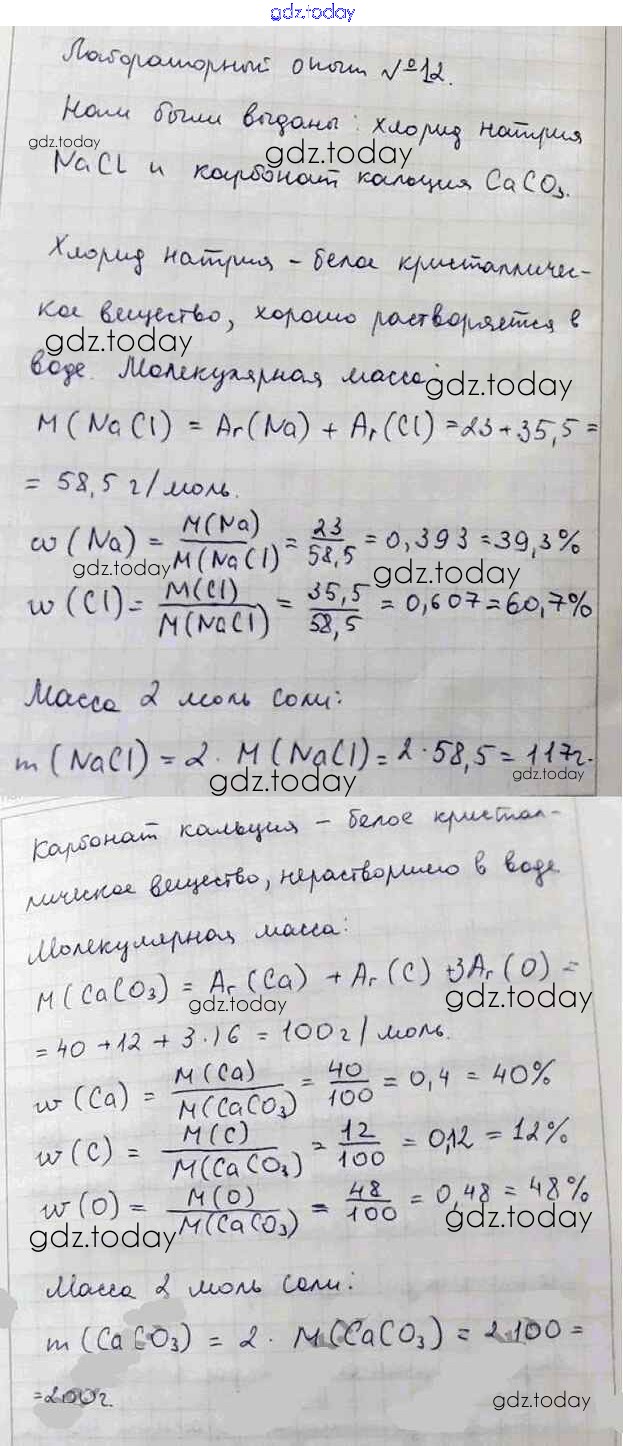 gdz.today
Лабораторный опыт №12.
Нам были выданы: хлорид натрия
gdz.today
gdz.today
NaCl и карбонат кальция CaCO₃.
Хлорид натрия – белое кристалличес-
кое вещество, хорошо растворяется в
gdz.today
воде. Молекулярная масса:
gdz.today
M(NaCl) = Ar(Na) + Ar(Cl) = 23 + 35,5 =
= 58,5 г/моль.
w(Na) = M(Na)/M(NaCl) = 23/58,5 = 0,393 = 39,3%
gdz.today
gdz.today
w(Cl) = M(Cl)/M(NaCl) = 35,5/58,5 = 0,607 = 60,7%
Масса 2 моль соли:
m(NaCl) = 2 · M(NaCl) = 2 · 58,5 = 117г.
gdz.today
gdz.today
Карбонат кальция – белое кристал-
лическое вещество, нерастворимо в воде
Молекулярная масса:
M(CaCO₃) = Ar(Ca) + Ar(C) + 3Ar(O) =
gdz.today
gdz.today
= 40 + 12 + 3·16 = 100 г/моль.
w(Ca) = M(Ca)/M(CaCO₃) = 40/100 = 0,4 = 40%
w(C) = M(C)/M(CaCO₃) = 12/100 = 0,12 = 12%
w(O) = M(O)/M(CaCO₃) = 48/100 = 0,48 = 48%
gdz.today
gdz.today
Масса 2 моль соли:
m(CaCO₃) = 2 · M(CaCO₃) = 2·100 =
= 200г.
gdz.today